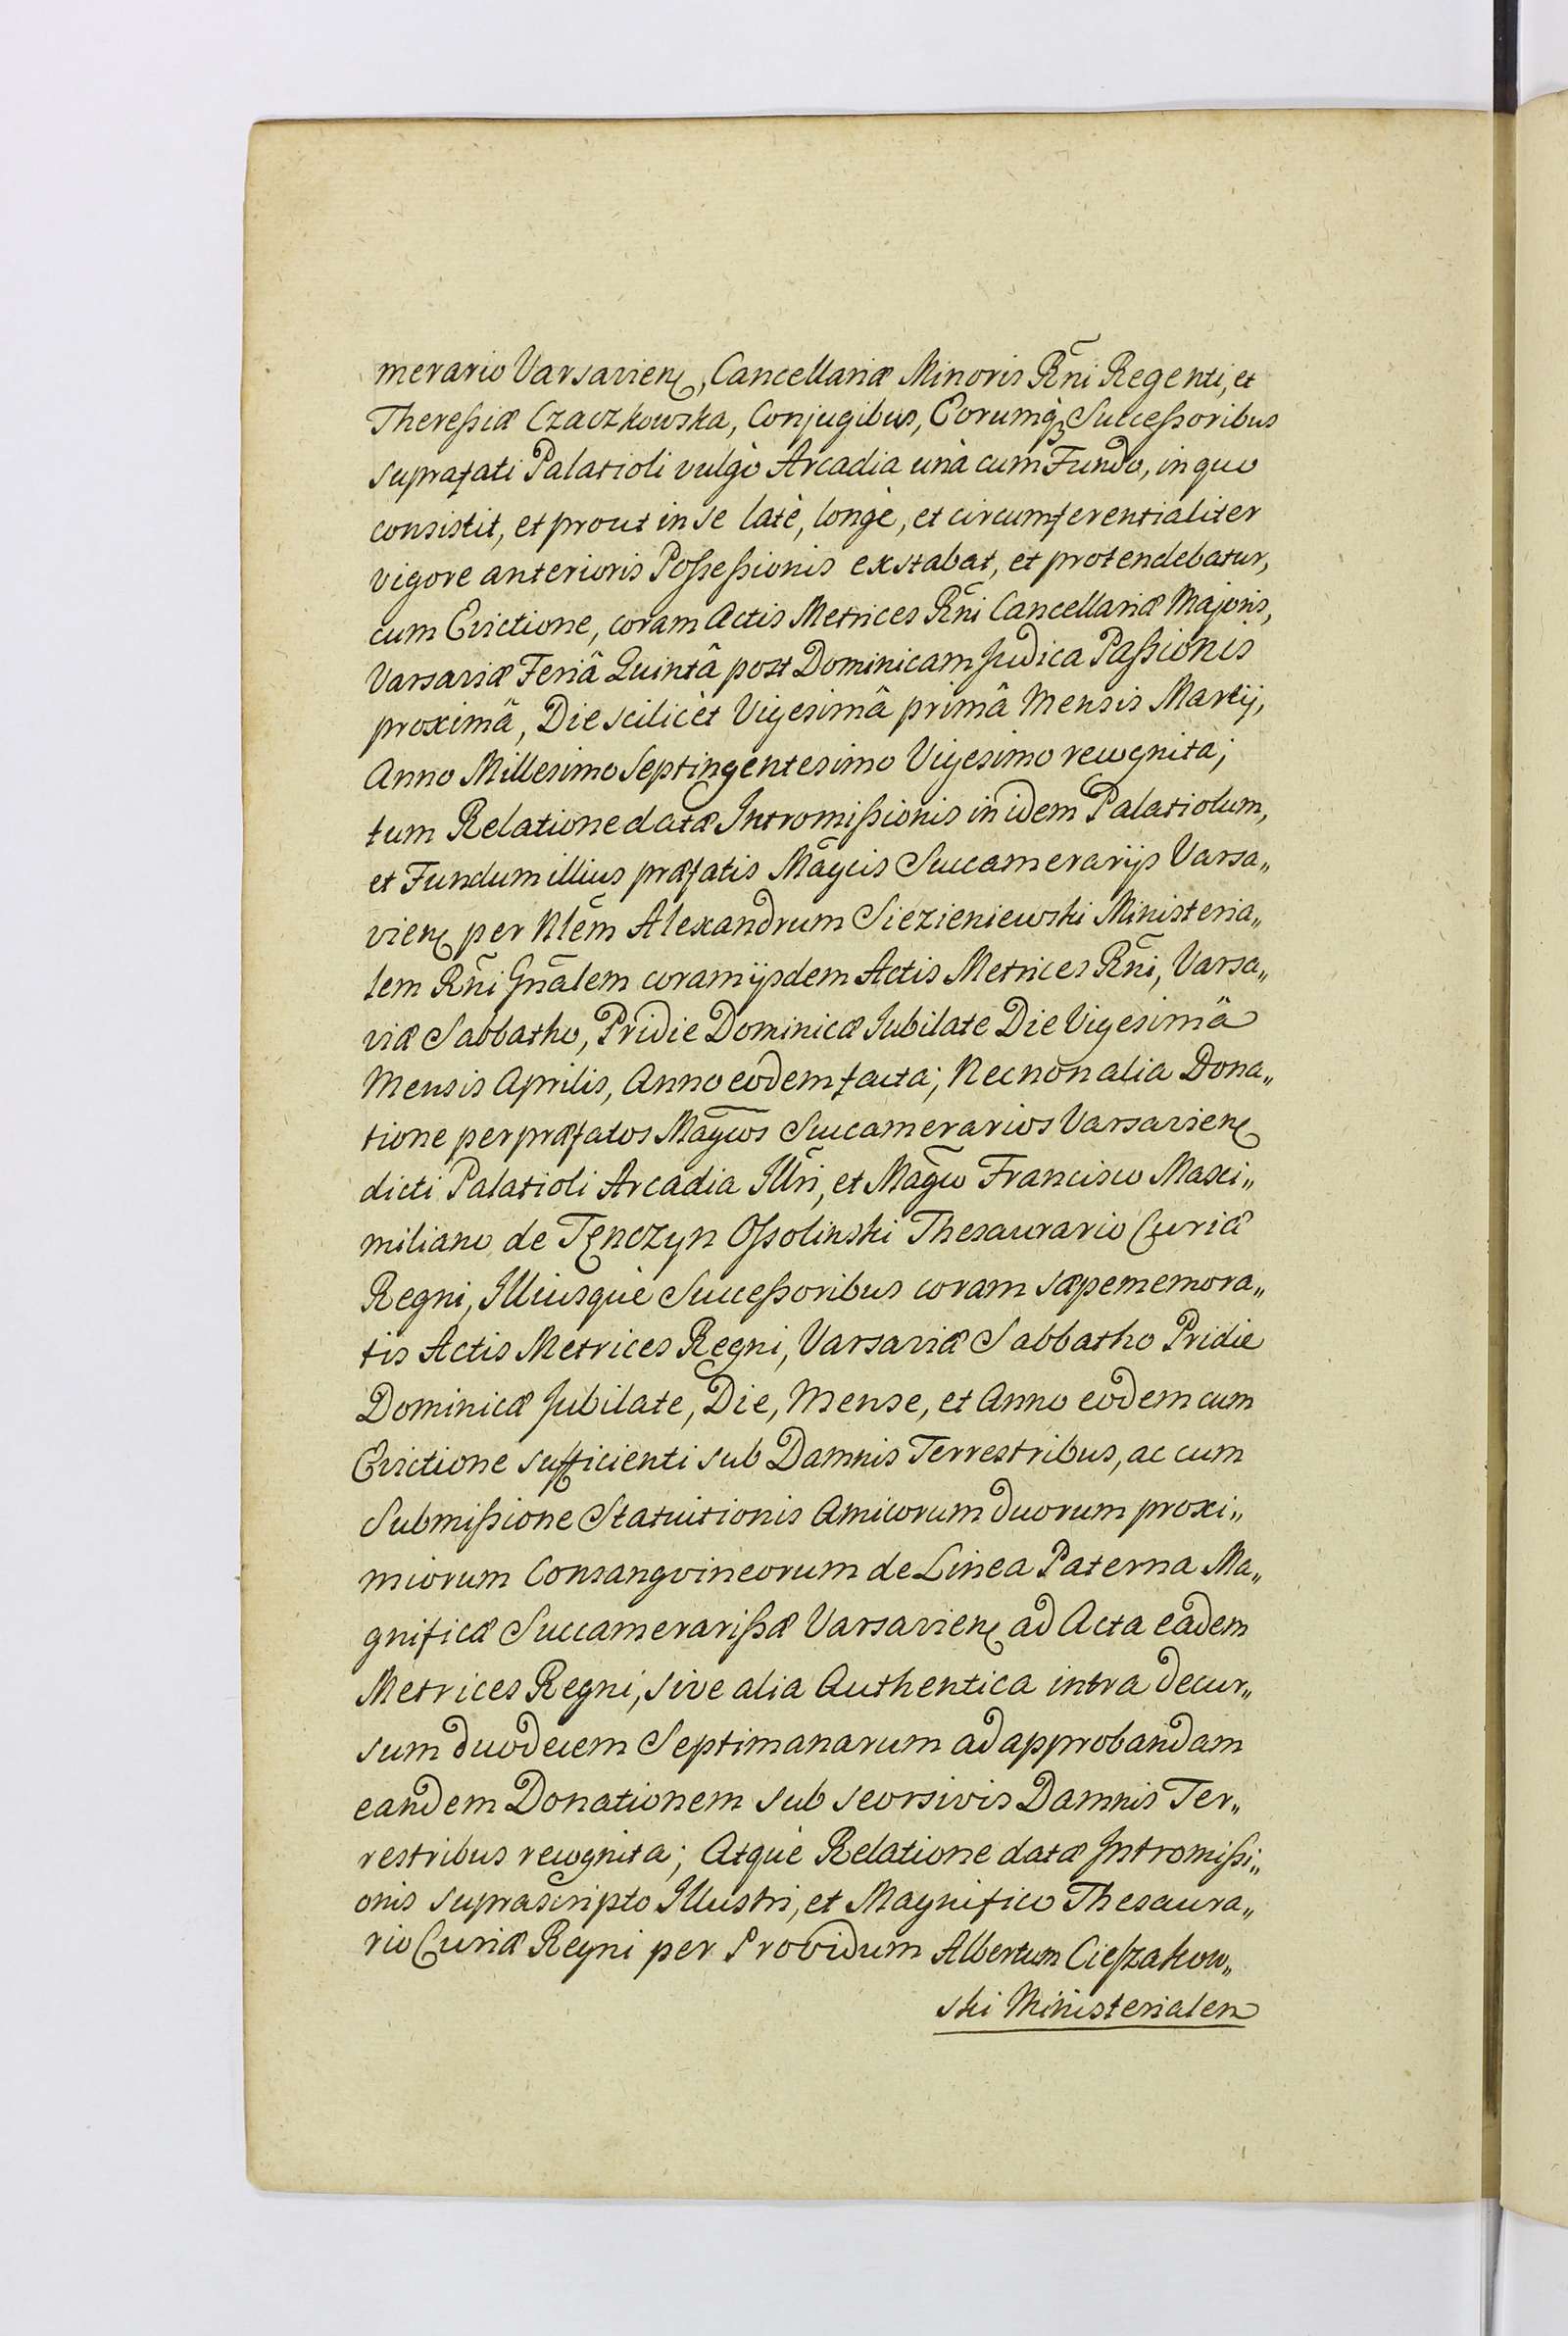 merario Varsavien, Cancellariæ Minoris Rñi Regenti, et
Theresſiæ Czaczkowska, Conjugibus, Eorumq₃ Succeſsoribus
suprafati Palatioli vulgò Arcadia unà cum Fundo, in quo
consistit, et prout in se latè, longè, et circumferentialiter
vigore anterioris Poſseſsionis exstabat, et protendebatur,
cum Evictione, coram Actis Metrices Rñi Cancellariæ Majoris,
Varsaviæ Feriâ Quintâ post Dominicam Judica Paſsionis
proximâ, Die scilicèt Vigesimâ primâ Mensis Martij,
Anno Millesimo Septingentesimo Vigesimo recognita;
tum Relatione datæ Intromiſsionis in idem Palatiolum,
et Fundum illius præfatis Magcis Succamerarijs Varsa„
vien per Nlem Alexandrum Siezieniewski Ministeria„
lem Rñi Gñalem coram ijsdem Actis Metrices Rñi, Varsa„
viæ Sabbatho, Pridie Dominicæ Jubilate Die Vigesimâ
Mensis Aprilis, Anno eodem facta; Necnon alia Dona„
tione per præfatos Magcos Succamerarios Varsavien
dicti Palatioli Arcadia Illri, et Magco Francisco Maxi„
miliano de Tęnczyn Oſsolinski Thesaurario Curiæ
Regni, Illiusquè Succeſsoribus coram sæpememora„
tis Actis Metrices Regni, Varsaviæ Sabbatho Pridie
Dominicæ Jubilate, Die, Mense, et Anno eodem cum
Evictione sufficienti sub Damnis Terrestribus, ac cum
Submiſsione Statuitionis Amicorum duorum proxi„
miorum Consangvineorum de Linea Paterna Ma„
gnificæ Succamerariſsæ Varsavien ad Acta eadem
Metrices Regni, sive alia Authentica intra decur„
sum duodecem Septimanarum ad approbandam
eandem Donationem sub seorsivis Damnis Ter„
restribus recognita; Atquè Relatione datæ Intromiſsi„
onis suprascripto Illustri, et Magnifico Thesaura„
rio Curiæ Regni per Providum Albertum Cieſzakow„
ski Ministerialem